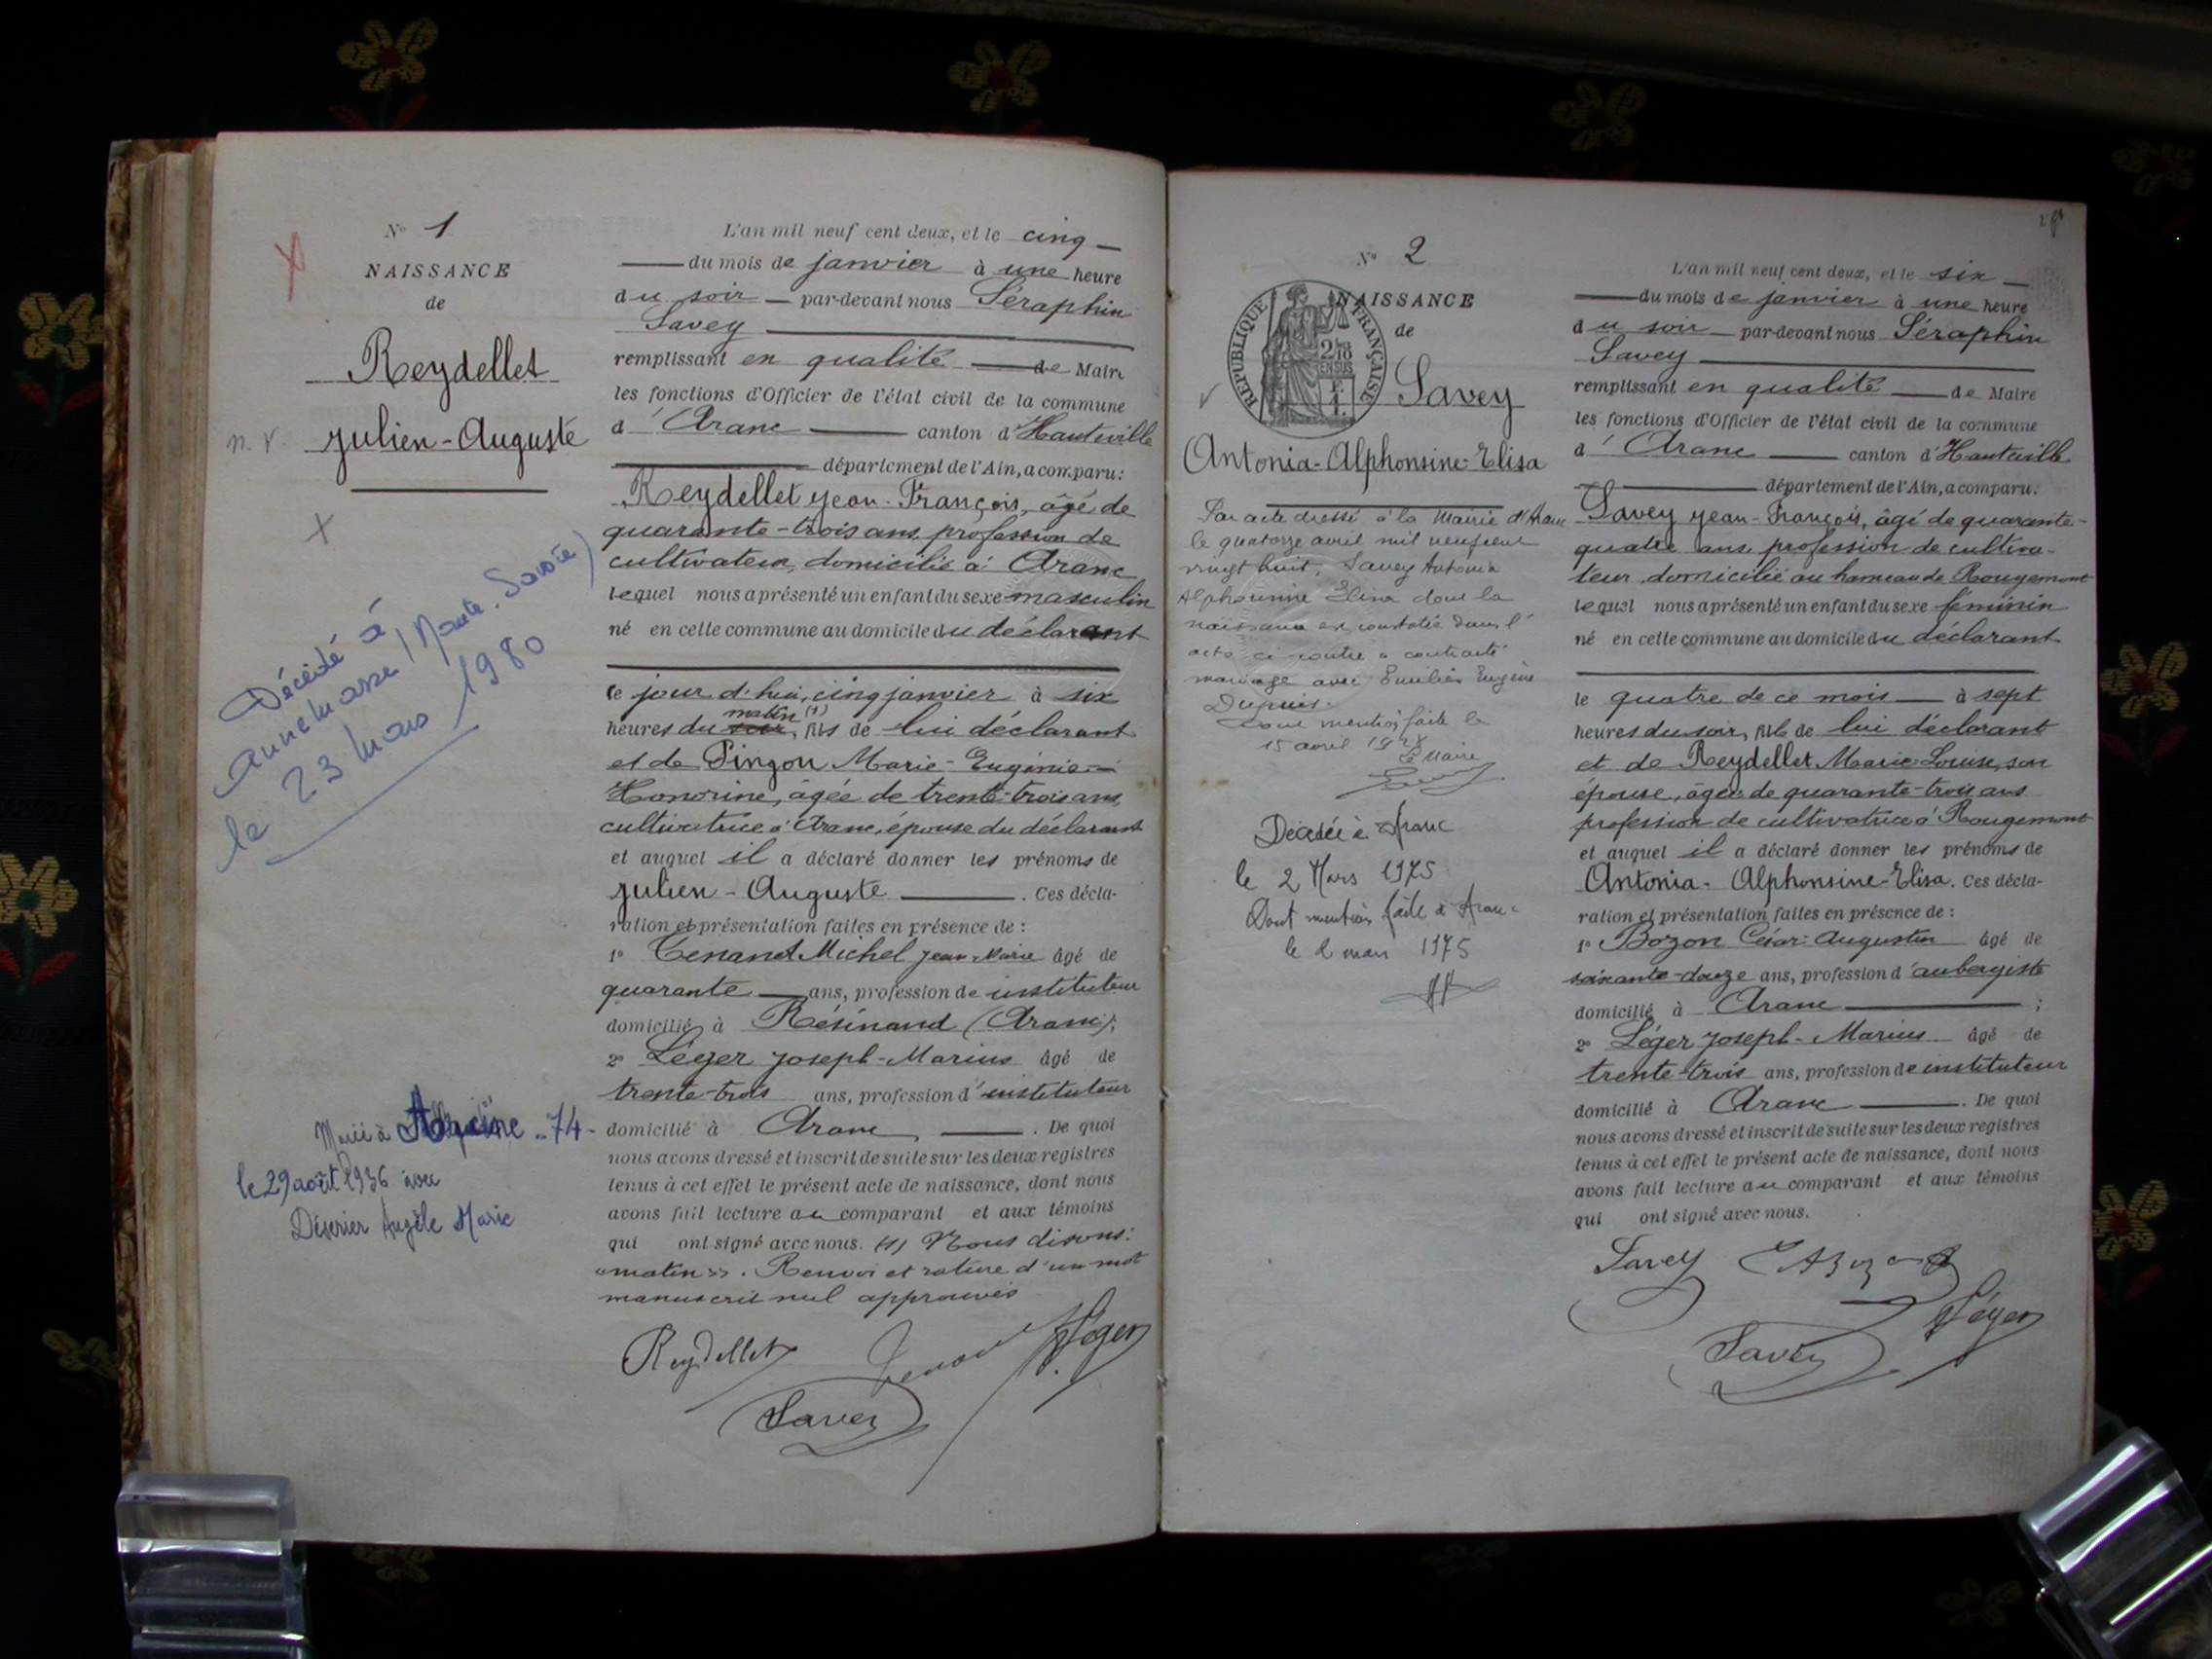 N° 1
NAISSANCE
de
Reydellet
Julien-Auguste
n. v.
Décédé à
Annemasse (Haute-Savoie)
le 23 mars 1980
Marié à
74
le 29 août 1936 avec
Angèle Marie
L'an mil neuf cent deux, et le cinq
du mois de janvier à une heure
du soir par-devant nous Séraphin
Savey
remplissant en qualité de Maire
les fonctions d'Officier de l'état civil de la commune
d'Aranc canton d'Hauteville
département de l'Ain, a comparu:
Reydellet Jean-François, âgé de
quarante-trois ans, profession de
cultivateur, domicilié à Aranc
lequel nous a présenté un enfant du sexe masculin
né en cette commune au domicile du déclarant
le jour d'hui, cinq janvier à six
matin (1)
heures du soir, fils de lui déclarant
et de Pingon Marie-Eugénie-
Honorine, âgée de trente-trois ans,
cultivatrice à Aranc, épouse du déclarant
et auquel il a déclaré donner les prénoms de
Julien-Auguste. Ces décla-
ration et présentation faites en présence de :
1° Tenand Michel Jean-Marie âgé de
quarante ans, profession de instituteur
domicilié à Résinand (Aranc);
2° Léger Joseph-Marius âgé de
trente-trois ans, profession d'instituteur
domicilié à Aranc. De quoi
nous avons dressé et inscrit de suite sur les deux registres
tenus à cet effet le présent acte de naissance, dont nous
avons fait lecture au comparant et aux témoins
qui ont signé avec nous. (1) Nous disons:
«matin». Renvoi et rature d'un mot
manuscrit nul approuvés
Reydellet Tenand Léger
Savey
N° 2
NAISSANCE
de
REPUBLIQUE FRANÇAISE
Savey
Antonia-Alphonsine-Elisa
Par acte dressé à la Mairie d'Aranc
le quatorze avril mil neuf cent
vingt huit, Savey Antonia
Alphonsine Elisa dont la
naissance est constatée dans l'
acte ci contre a contracté
mariage avec Emilien Eugène
Dupuis.
Dont mention faite le
15 avril 1928
Le Maire
Décédée à Aranc
le 2 Mars 1975
Dont mention faite à Aranc
le 2 mars 1975
L'an mil neuf cent deux, et le six
du mois de janvier à une heure
du soir par-devant nous Séraphin
Savey
remplissant en qualité de Maire
les fonctions d'Officier de l'état civil de la commune
d'Aranc canton d'Hauteville
département de l'Ain, a comparu.
Savey Jean-François, âgé de quarante-
quatre ans, profession de cultiva-
teur, domicilié au hameau de Rougemont
lequel nous a présenté un enfant du sexe féminin
né en cette commune au domicile du déclarant
le quatre de ce mois à sept
heures du soir, fille de lui déclarant
et de Reydellet Marie-Louise, son
épouse, âgée de quarante-trois ans
profession de cultivatrice à Rougemont
et auquel il a déclaré donner les prénoms de
Antonia-Alphonsine-Elisa. Ces décla-
ration et présentation faites en présence de :
1° Bozon César-Augustin âgé de
soixante-douze ans, profession d'aubergiste
domicilié à Aranc ;
2° Léger Joseph-Marius âgé de
trente-trois ans, profession de instituteur
domicilié à Aranc. De quoi
nous avons dressé et inscrit de suite sur les deux registres
tenus à cet effet le présent acte de naissance, dont nous
avons fait lecture au comparant et aux témoins
qui ont signé avec nous.
Savey
Léger
Savey